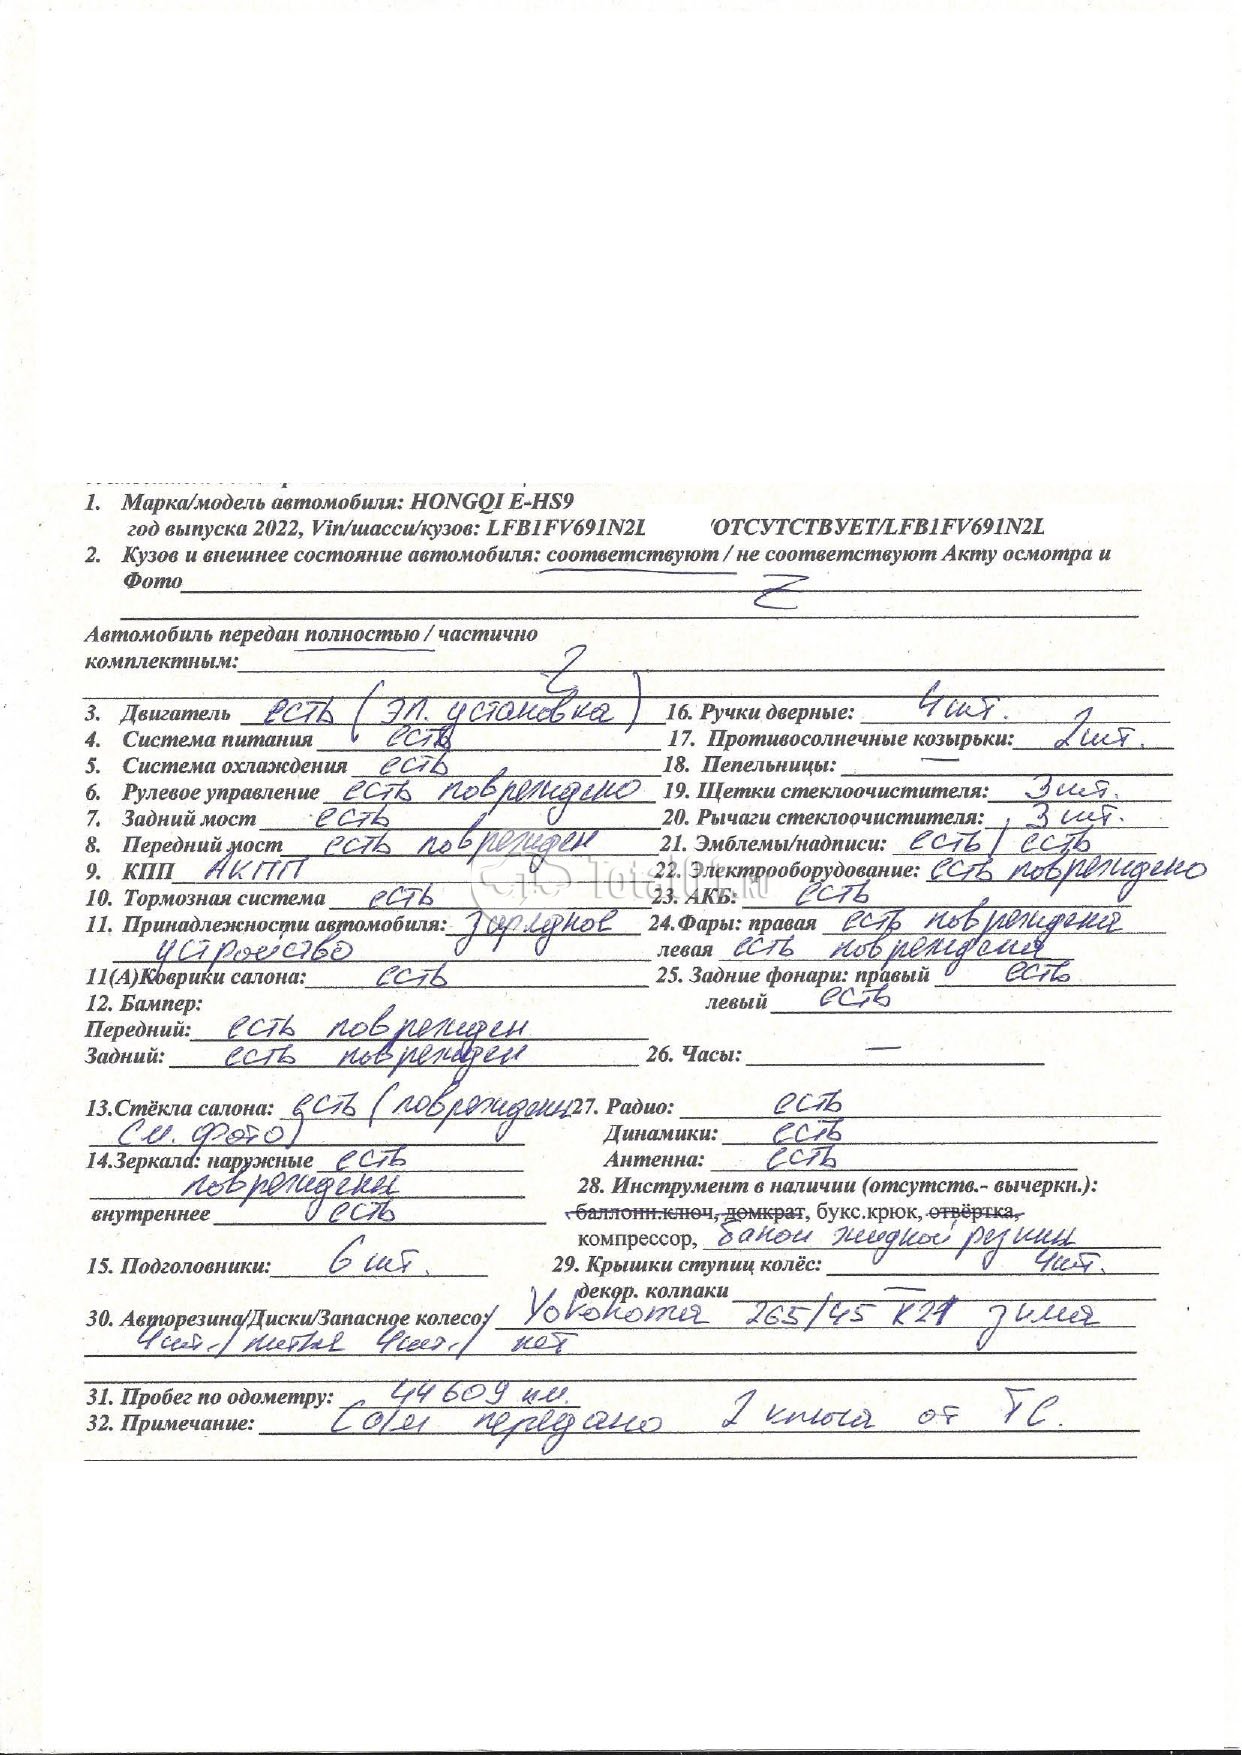 1. Марка/модель автомобиля: HONGQI E-HS9
год выпуска 2022, Vin/шасси/кузов: LFB1FV691N2L 'ОТСУТСТВУЕТ/LFB1FV691N2L
2. Кузов и внешнее состояние автомобиля: соответствуют / не соответствуют Акту осмотра и
Фото Z
Автомобиль передан полностью / частично
комплектным: Z
3. Двигатель есть (эл. установка) 16. Ручки дверные: 4 шт.
4. Система питания есть 17. Противосолнечные козырьки: 2 шт.
5. Система охлаждения есть 18. Пепельницы: —
6. Рулевое управление есть повреждено 19. Щетки стеклоочистителя: 3 шт.
7. Задний мост есть 20. Рычаги стеклоочистителя: 3 шт.
8. Передний мост есть поврежден 21. Эмблемы/надписи: есть / есть
9. КПП АКПП Total01.ru 22. Электрооборудование: есть повреждено
10. Тормозная система есть 23. АКБ: есть
11. Принадлежности автомобиля: Зарядное 24.Фары: правая есть повреждена
устройство левая есть повреждена
11(А)Коврики салона: есть 25. Задние фонари: правый есть
12. Бампер: левый есть
Передний: есть поврежден
Задний: есть поврежден 26. Часы: —
13.Стёкла салона: есть (повреждены 27. Радио: есть
см. фото) Динамики: есть
14.Зеркала: наружные есть Антенна: есть
повреждены 28. Инструмент в наличии (отсутств.- вычеркн.):
внутреннее есть баллонн.ключ, домкрат, букс.крюк, отвёртка,
компрессор, балон жидкой резины
15. Подголовники: 6 шт. 29. Крышки ступиц колёс: 4шт.
декор. колпаки —
30. Авторезина/Диски/Запасное колесо: Yokohoma 265/45 R21 зима
4 шт./ литые 4шт./ нет
31. Пробег по одометру: 44609 км.
32. Примечание: передано 2 ключа от ТС.